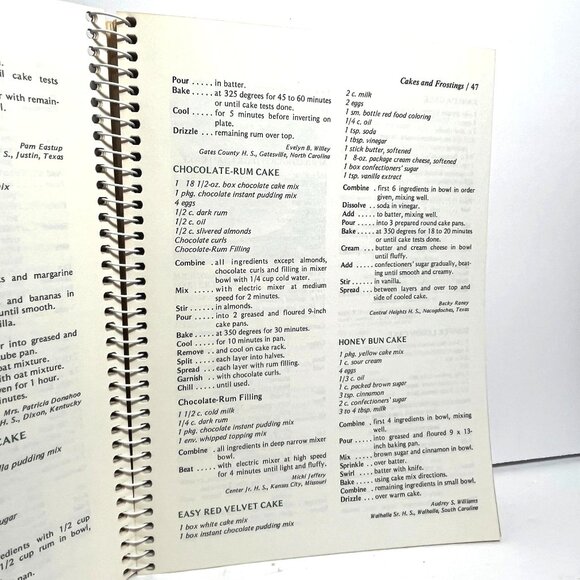 il cake tests
er with remain-
Pam Eastup
S., Justin, Texas
mix
ks and margarine
and bananas in
til smooth.
illa.
er into greased and
ube pan.
oat mixture.
ith oat mixture.
ven for 1 hour.
inutes.
Mrs. Patricia Donahoo
H. S., Dixon, Kentucky
CAKE
illa pudding mix
ugar
ngredients with 1/2 cup
cup rum in bowl,
pan.
Cakes and Frostings / 47
Pour ..... in batter.
Bake ..... at 325 degrees for 45 to 60 minutes
or until cake tests done.
Cool ..... for 5 minutes before inverting on
plate.
Drizzle ... remaining rum over top.
Evelyn B. Willey
Gates County H. S., Gatesville, North Carolina
CHOCOLATE-RUM CAKE
1 18 1/2-oz. box chocolate cake mix
1 pkg. chocolate instant pudding mix
4 eggs
1/2 c. dark rum
1/2 c. oil
1/2 c. slivered almonds
Chocolate curls
Chocolate-Rum Filling
Combine . all ingredients except almonds,
chocolate curls and filling in mixer
bowl with 1/4 cup cold water.
Mix ..... with electric mixer at medium
speed for 2 minutes.
Stir ..... in almonds.
Pour ..... into 2 greased and floured 9-inch
cake pans.
Bake ..... at 350 degrees for 30 minutes.
Cool ..... for 10 minutes in pan.
Remove .. and cool on cake rack.
Split ..... each layer into halves.
Spread ... each layer with rum filling.
Garnish .. with chocolate curls.
Chill ..... until used.
Chocolate-Rum Filling
1 1/2 c. cold milk
1/4 c. dark rum
1 pkg. chocolate instant pudding mix
1 env. whipped topping mix
Combine . all ingredients in deep narrow mixer
bowl.
Beat ..... with electric mixer at high speed
for 4 minutes until light and fluffy.
Micki Jeffery
Center Jr. H. S., Kansas City, Missouri
EASY RED VELVET CAKE
1 box white cake mix
1 box instant chocolate pudding mix
2 c. milk
2 eggs
1 sm. bottle red food coloring
1/4 c. oil
1 tsp. soda
1 tbsp. vinegar
1 stick butter, softened
1 8-oz. package cream cheese, softened
1 box confectioners' sugar
1 tsp. vanilla extract
Combine . first 6 ingredients in bowl in order
given, mixing well.
Dissolve .. soda in vinegar.
Add ..... to batter, mixing well.
Pour ..... into 3 prepared round cake pans.
Bake ..... at 350 degrees for 18 to 20 minutes
or until cake tests done.
Cream ... butter and cream cheese in bowl
until fluffy.
Add ..... confectioners' sugar gradually, beat-
ing until smooth and creamy.
Stir ..... in vanilla.
Spread ... between layers and over top and
side of cooled cake.
Becky Raney
Central Heights H. S., Nacogdoches, Texas
HONEY BUN CAKE
1 pkg. yellow cake mix
1 c. sour cream
4 eggs
1/3 c. oil
1 c. packed brown sugar
3 tsp. cinnamon
2 c. confectioners' sugar
3 to 4 tbsp. milk
Combine . first 4 ingredients in bowl, mixing
well.
Pour ..... into greased and floured 9 x 13-
inch baking pan.
Mix ..... brown sugar and cinnamon in bowl.
Sprinkle .. over batter.
Swirl .... batter with knife.
Bake ..... using cake mix directions.
Combine . remaining ingredients in small bowl.
Drizzle ... over warm cake.
Audrey S. Williams
Walhalla Sr. H. S., Walhalla, South Carolina